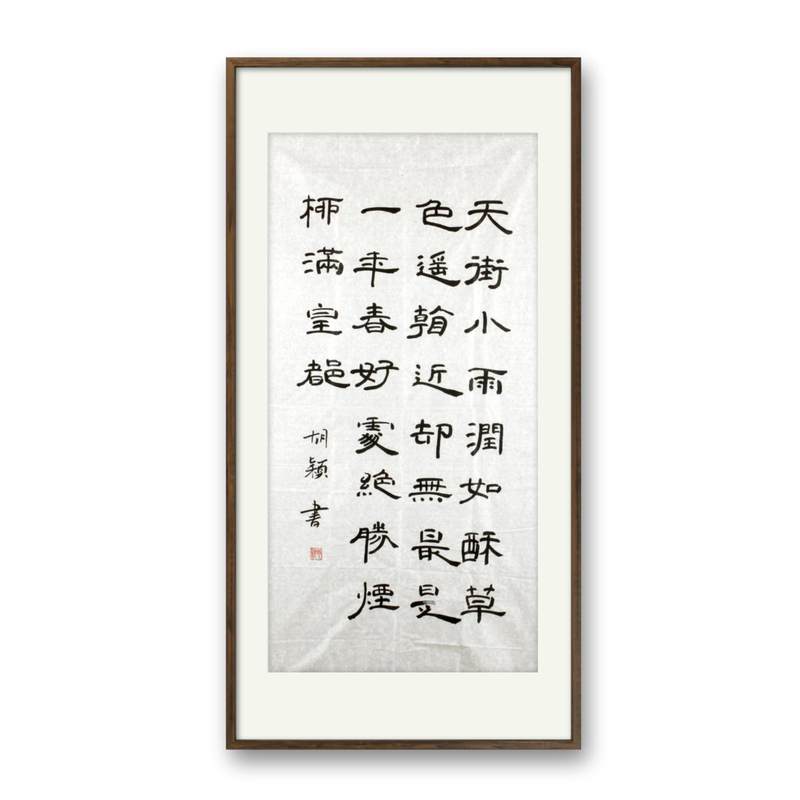 天街小雨潤如酥草
色遙看近却無最是
一年春好處絶勝煙
柳滿皇都
胡穎書